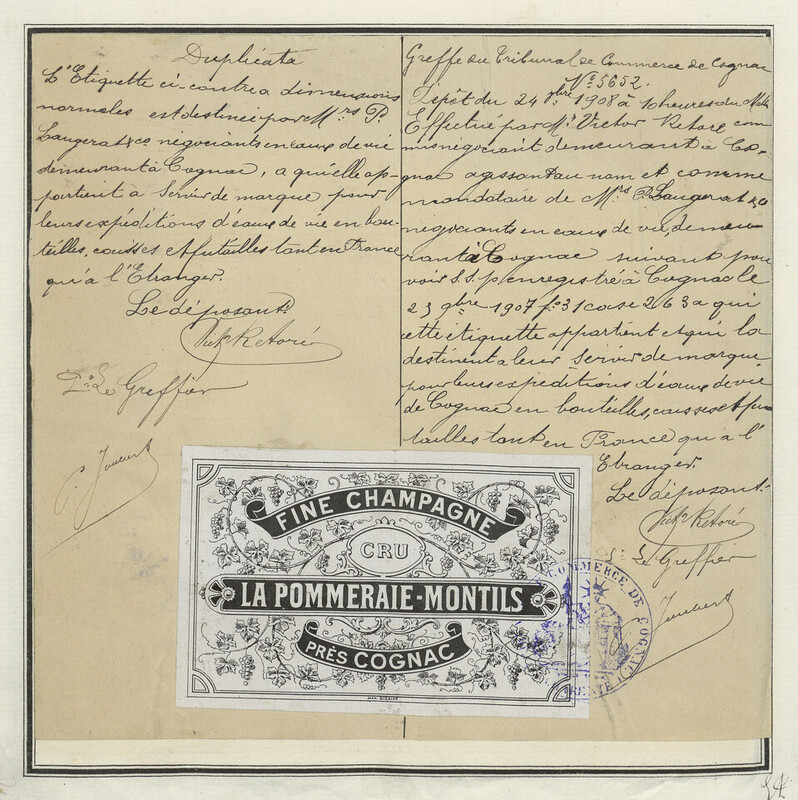 Duplicata
L'Etiquette ci-contre a dimensions
normales est destinée par Mrs P.
Laugerat & co négociants en eaux de vie
demeurant à Cognac, a qu'elle ap-
partient à servir de marque pour
leurs expéditions d'eaux de vie en bou-
teilles, caisses et futailles tant en France
qu'à l'Etranger.
Le déposant:
Victr Retoré
Pr Le Greffier
P. Joubert
Greffe du Tribunal de Commerce de Cognac
No 5652.
Dépôt du 24 9bre 1908 à 10 heures du Matin
Effectué par Mr Victor Retoré com
mis négociant demeurant à Co-
gnac agissant au nom et comme
mandataire de Mrs P. Laugerat & co
négociants en eaux de vie, demeu-
rant à Cognac suivant pou
voir S.S.p. enregistré à Cognac le
23 9bre 1907 fo 31 case 263 a qui
cette étiquette appartient et qui la
destinent a leur servir de marque
pour leurs expéditions d'eaux de vie
de Cognac en bouteilles, caisses et fu-
tailles tant en France qu'à l'
Etranger.
Le déposant:
Victr Retoré
Pr Le Greffier
Joubert
FINE CHAMPAGNE
CRU
LA POMMERAIE-MONTILS
PRÈS COGNAC
COMMERCE DE COGNAC